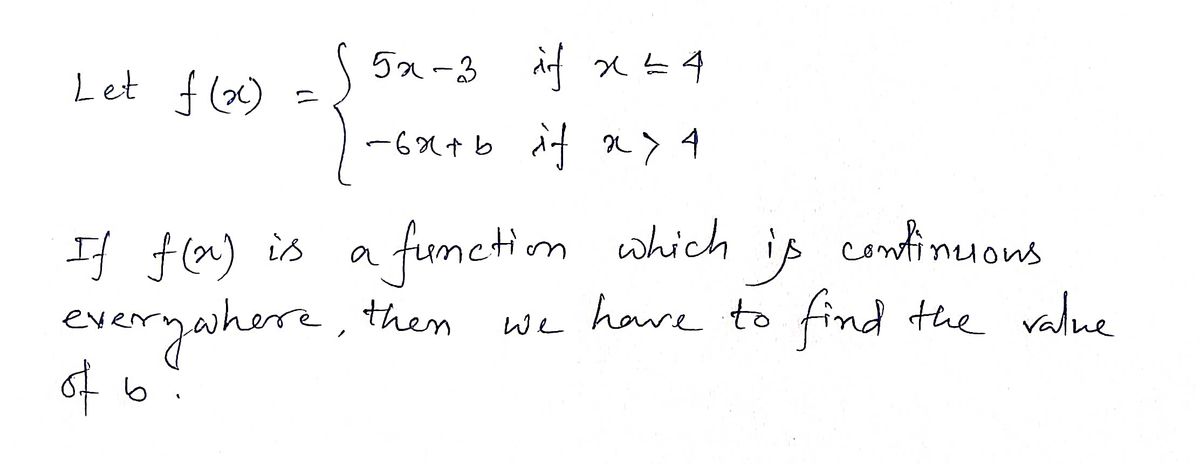 Let f(x) = { 5x-3 if x ≤ 4
-6x+b if x > 4
If f(x) is a function which is continuous
everywhere, then we have to find the value
of b.